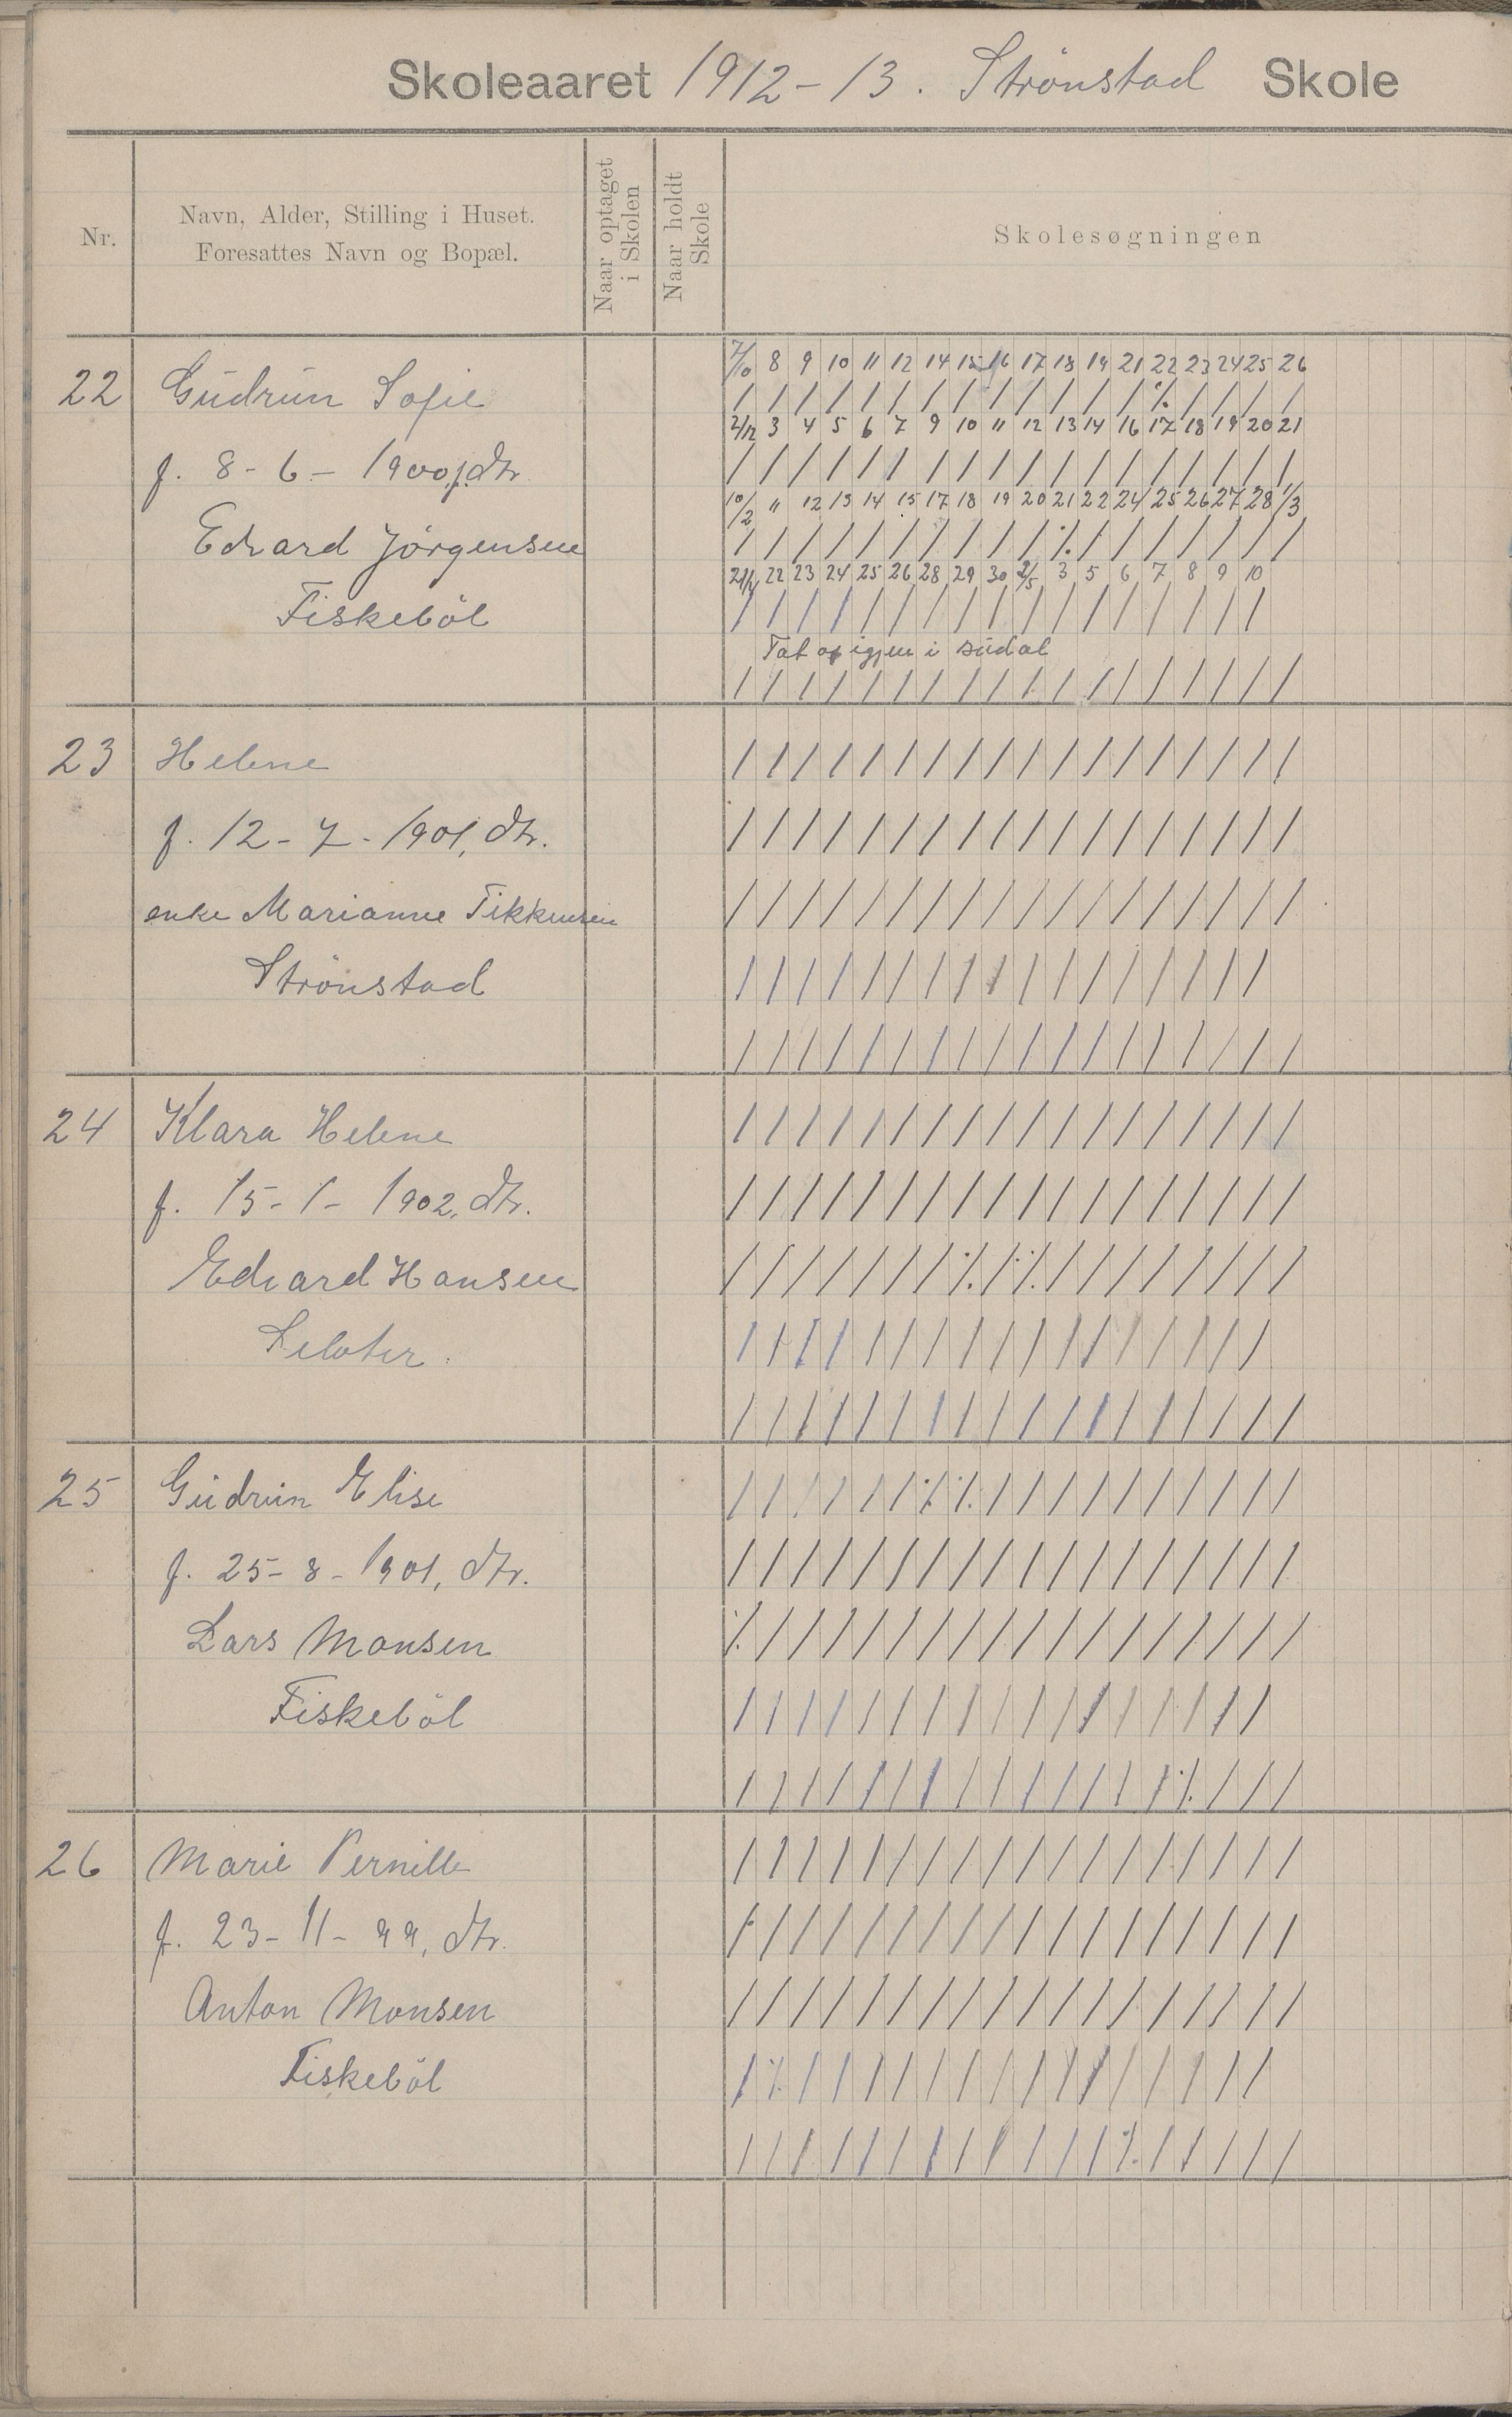 Skoleaaret 1912-13. Strönstad Skole
Nr.
Navn, Alder, Stilling i Huset.
Foresattes Navn og Bopæl.
Naar optaget
i Skolen
Naar holdt
Skole
Skolesøgningen
7/10 8 9 10 11 12 14 15 16 17 18 19 21 22 23 24 25 26
22 Gudrun Sofie
2/12 3 4 5 6 7 9 10 11 12 13 14 16 17 18 19 20 21
f. 8-6-1900, dtr.
10/2 11 12 13 14 15 17 18 19 20 21 22 24 25 26 27 28 1/3
Edvard Jörgensen
21/4 22 23 24 25 26 28 29 30 2/5 3 5 6 7 8 9 10
Fiskeböl
Tat op igjen i
23 Helene
f. 12-7-1901, dtr.
enke Marianne
Strönstad
24 Klara Helene
f. 15-1-1902, dtr.
Edvard Hansen
25 Gudrun Elise
f. 25-8-1901, dtr.
Lars Monsen
Fiskeböl
26 Marie Pernille
f. 23-11-99, dtr.
Anton Monsen
Fiskeböl